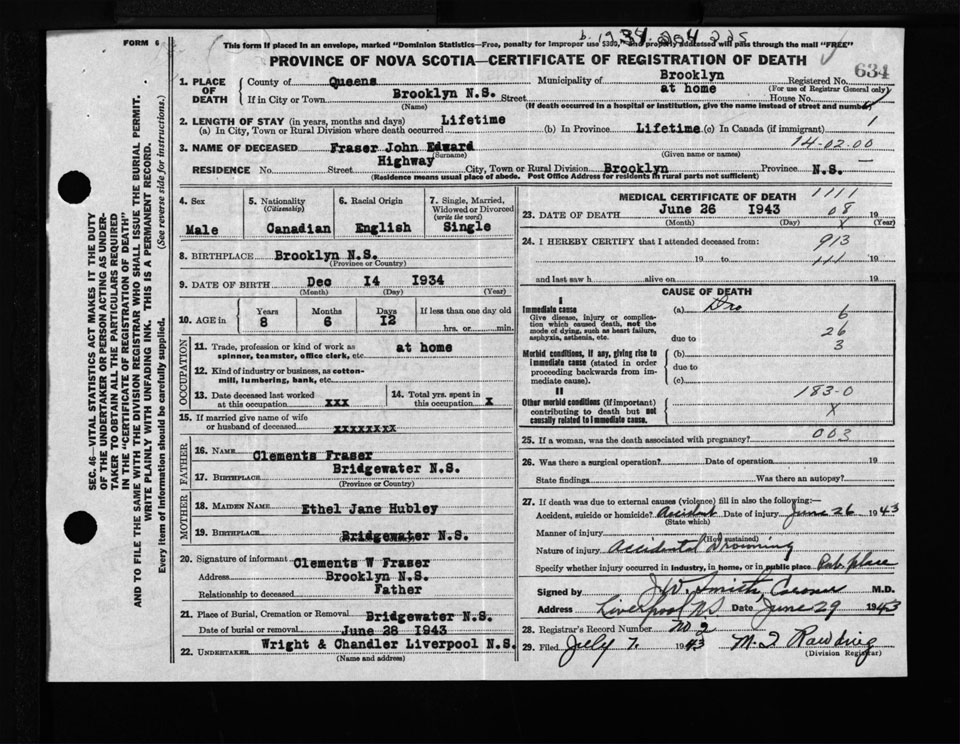 b. 1934. 204 225
FORM 6
This form if placed in an envelope, marked "Dominion Statistics—Free, penalty for improper use $300," and properly addressed will pass through the mail "FREE"
PROVINCE OF NOVA SCOTIA—CERTIFICATE OF REGISTRATION OF DEATH
634
1. PLACE OF DEATH
County of Queens Municipality of Brooklyn Registered No.
(For use of Registrar General only)
If in City or Town Brooklyn N.S. Street at home House No.
(Name) (If death occurred in a hospital or institution, give the name instead of street and number)
2. LENGTH OF STAY (in years, months and days)
(a) In City, Town or Rural Division where death occurred Lifetime (b) In Province Lifetime (c) In Canada (if immigrant) 1
3. NAME OF DECEASED Fraser John Edward 14-02.00
(Surname) (Given name or names)
RESIDENCE No. Highway Street City, Town or Rural Division Brooklyn Province N.S.
(Residence means usual place of abode. Post Office Address for residents in rural parts not sufficient)
4. Sex Male
5. Nationality (Citizenship) Canadian
6. Racial Origin English
7. Single, Married, Widowed or Divorced (write the word) Single
8. BIRTHPLACE Brooklyn N.S.
(Province or Country)
9. DATE OF BIRTH Dec 14 1934
(Month) (Day) (Year)
10. AGE in
Years Months Days If less than one day old
8 6 12 hrs. or min.
OCCUPATION
11. Trade, profession or kind of work as spinner, teamster, office clerk, etc. at home
12. Kind of industry or business, as cotton-mill, lumbering, bank, etc.
13. Date deceased last worked at this occupation xxx
14. Total yrs. spent in this occupation x
15. If married give name of wife or husband of deceased xxxxxxxx
FATHER
16. NAME Clements Fraser
17. BIRTHPLACE Bridgewater N.S.
(Province or Country)
MOTHER
18. MAIDEN NAME Ethel Jane Hubley
19. BIRTHPLACE Bridgewater N.S.
20. Signature of informant Clements W Fraser
Address Brooklyn N.S.
Relationship to deceased Father
21. Place of Burial, Cremation or Removal Bridgewater N.S.
Date of burial or removal June 28 1943
22. UNDERTAKER Wright & Chandler Liverpool N.S.
(Name and address)
MEDICAL CERTIFICATE OF DEATH 1111
23. DATE OF DEATH June 26 1943 08 19
(Month) x (Day) (Year)
24. I HEREBY CERTIFY that I attended deceased from:
913
19 to 111 19
and last saw h alive on 19
CAUSE OF DEATH
I
Immediate cause
Give disease, injury or complication which caused death, not the mode of dying, such as heart failure, asphyxia, asthenia, etc.
(a) Dro 6
26
due to 3
Morbid conditions, if any, giving rise to immediate cause (stated in order proceeding backwards from immediate cause).
(b)
due to
(c)
II
Other morbid conditions (if important) contributing to death but not causally related to immediate cause.
183-0
x
25. If a woman, was the death associated with pregnancy? 003
26. Was there a surgical operation? Date of operation 19
State findings Was there an autopsy?
27. If death was due to external causes (violence) fill in also the following:—
Accident, suicide or homicide? Accident Date of injury June 26 1943
(State which)
Manner of injury
(How sustained)
Nature of injury Accidental Drowning
Specify whether injury occurred in industry, in home, or in public place Pub. place
Signed by J W. Smith, Coroner M.D.
Address Liverpool NS Date June 29 1943
28. Registrar's Record Number No 2
29. Filed July 7. 1943 M. I Rawding
(Division Registrar)
SEC. 46—VITAL STATISTICS ACT MAKES IT THE DUTY
OF THE UNDERTAKER OR PERSON ACTING AS UNDER-
TAKER TO OBTAIN ALL THE PARTICULARS REQUIRED
IN THE "CERTIFICATE OF REGISTRATION OF DEATH"
AND TO FILE THE SAME WITH THE DIVISION REGISTRAR WHO SHALL ISSUE THE BURIAL PERMIT.
WRITE PLAINLY WITH UNFADING INK. THIS IS A PERMANENT RECORD.
Every item of information should be carefully supplied. (See reverse side for instructions.)